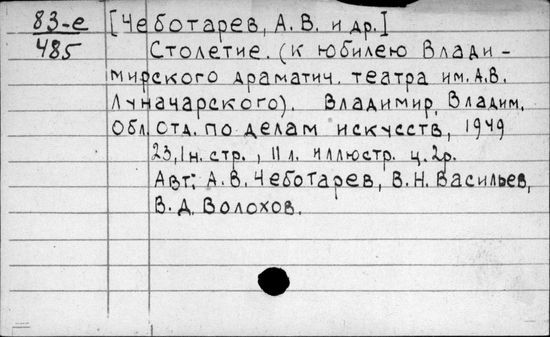 83-е [Чеботарев, А. В. и др.]
485 Столетие. (К юбилею Влади-
мирского драматич. театра им. А.В.
Луначарского). Владимир, Владим.
Обл. Отд. по делам искусств, 1949
23,1н. стр., 11 л. иллюстр. ц. 2р.
Авт: А. В. Чеботарев, В. Н. Васильев,
В. Д. Волохов.